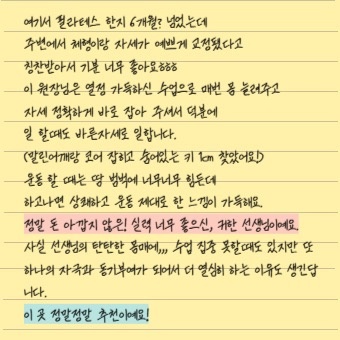 여기서 필라테스 한지 6개월? 넘었는데
주변에서 체형이랑 자세가 예쁘게 교정됐다고
칭찬받아서 기분 너무 좋아요ㅎㅎㅎ
이 원장님은 열정 가득하신 수업으로 매번 몸 늘려주고
자세 정확하게 바로 잡아 주셔서 덕분에
일 할때도 바른자세로 일합니다.
(말린어깨랑 코어 잡히고 숨어있는 키 1cm 찾았어요!)
운동 할 때는 땀 범벅에 너무너무 힘든데
하고나면 상쾌하고 운동 제대로 한 느낌이 가득해요.
정말 돈 아깝지 않은! 실력 너무 좋으신, 귀한 선생님이예요.
사실 선생님의 탄탄한 몸매에,,, 수업 집중 못할때도 있지만 또
하나의 자극과 동기부여가 되어서 더 열심히 하는 이유도 생긴답
니다.
이 곳 정말정말 추천이예요!